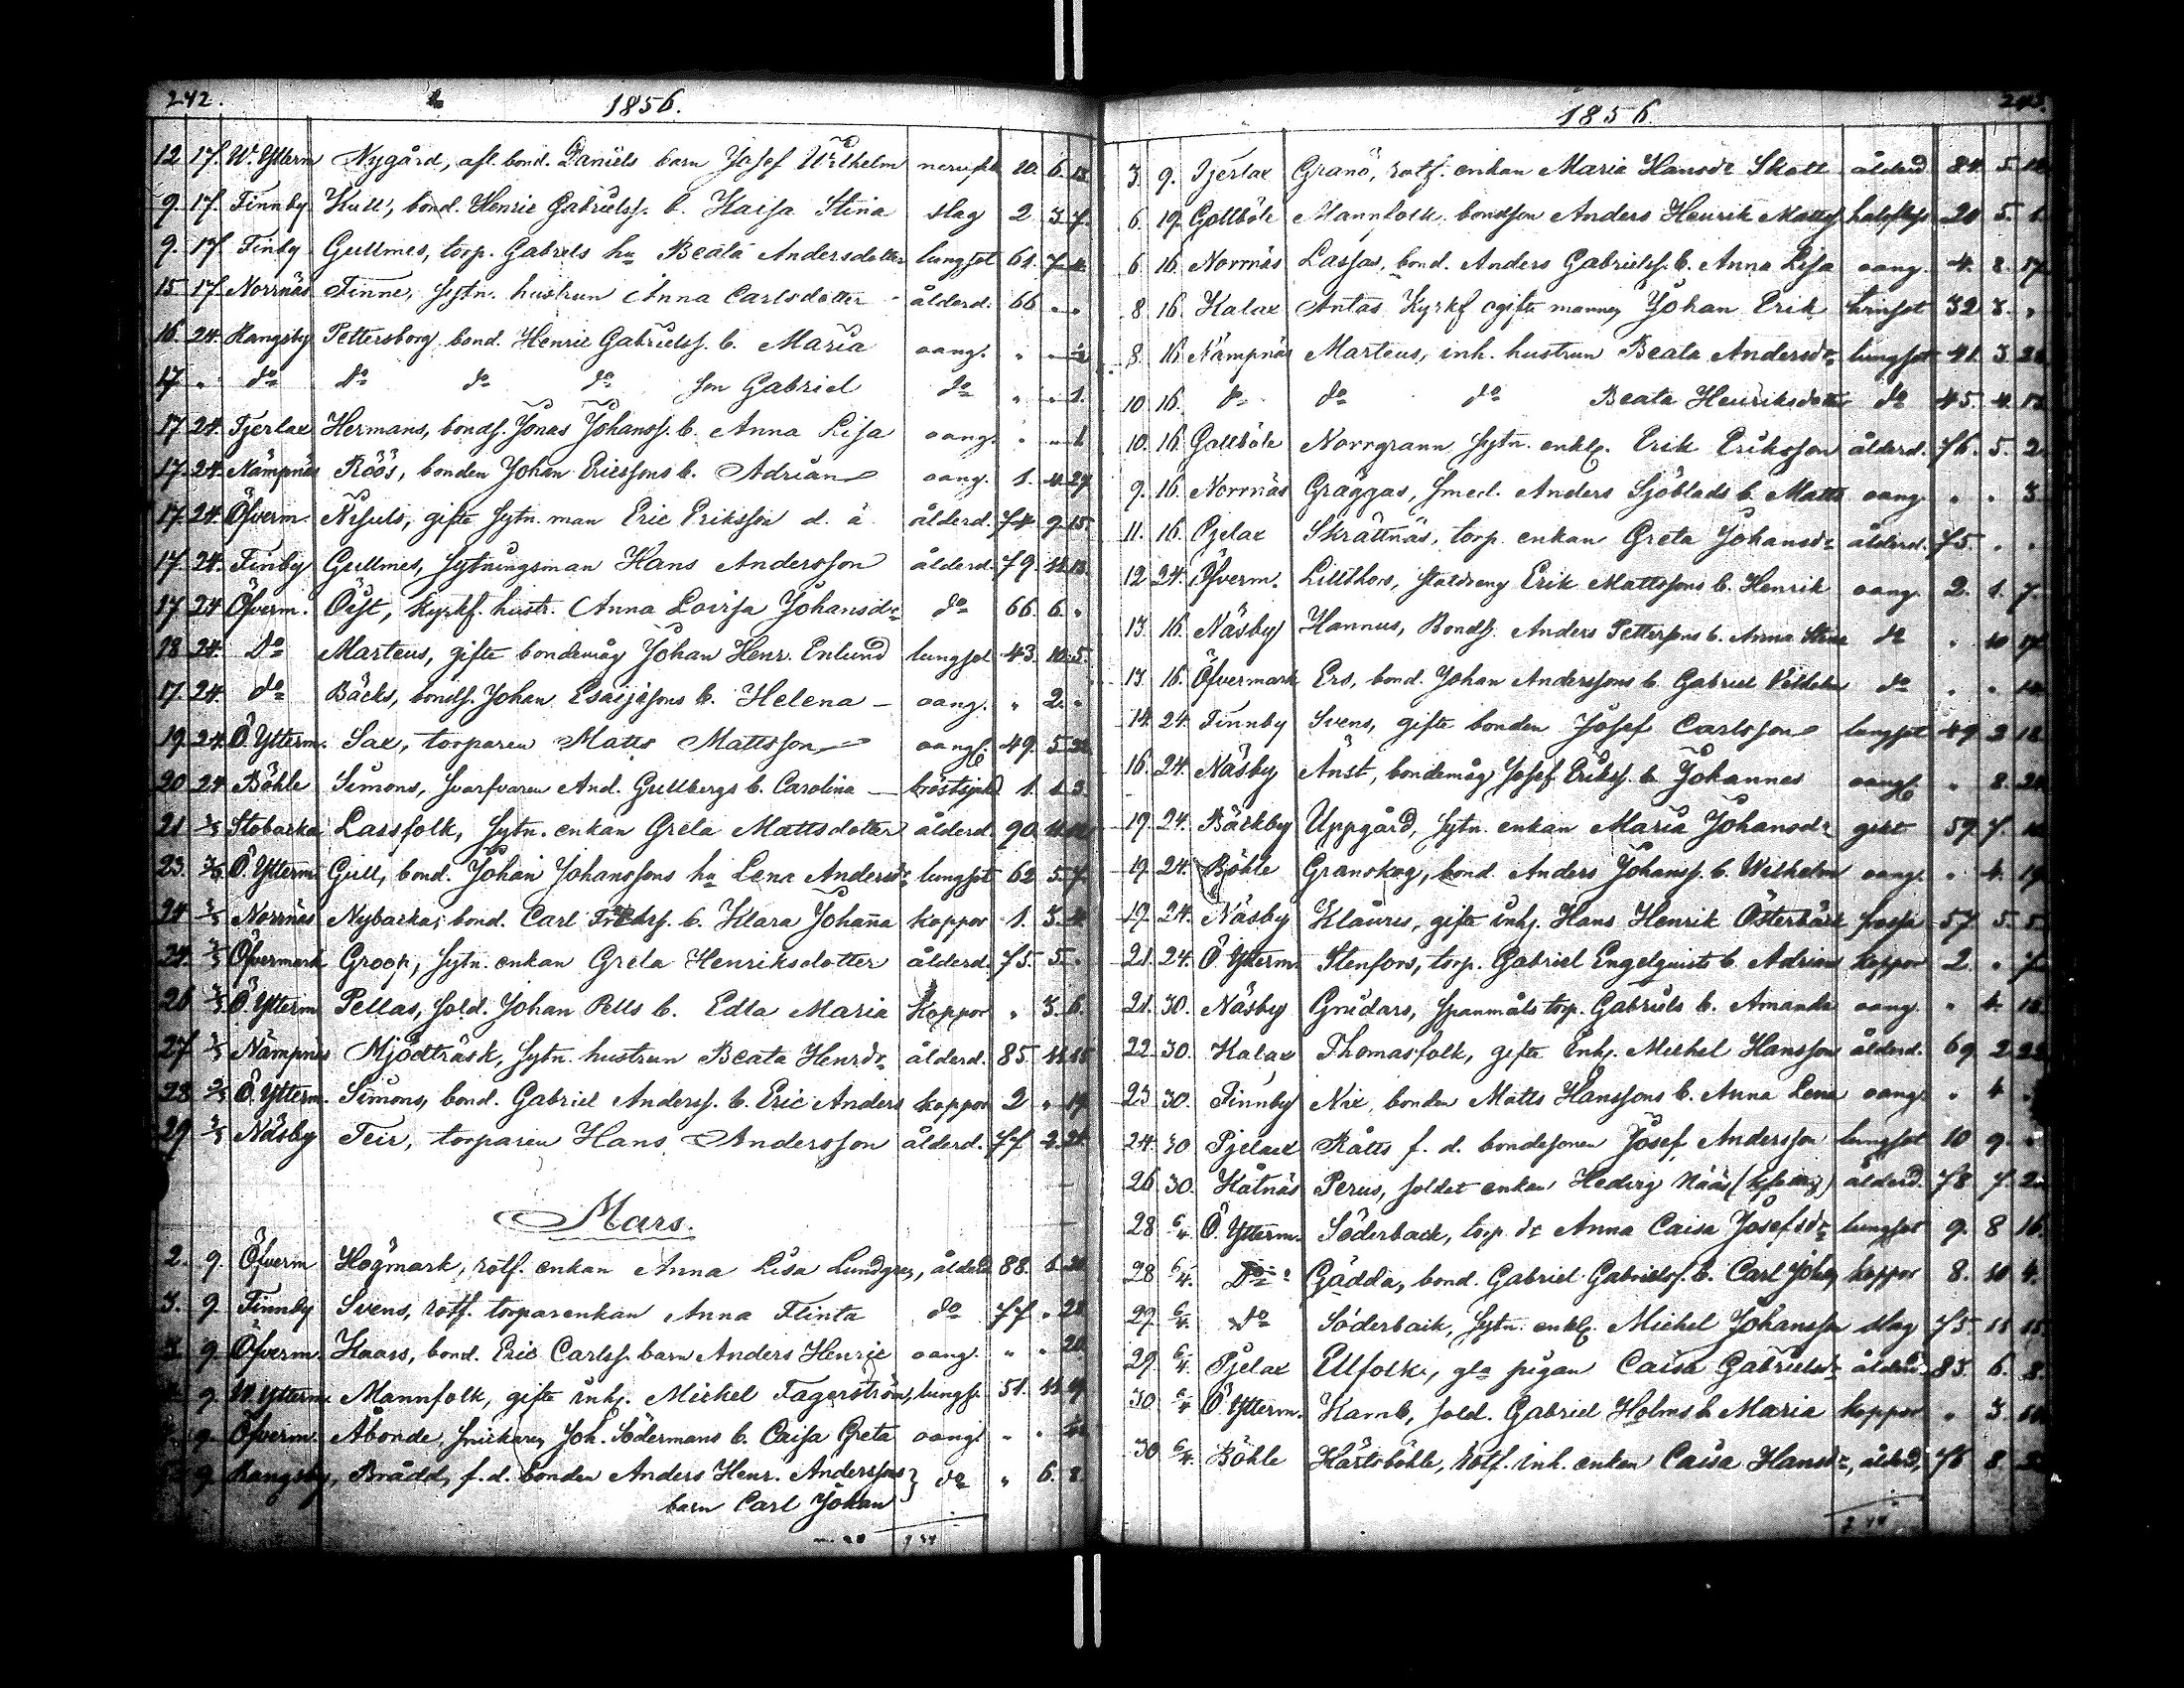 242.
1856.
12 17. W. Ytterm Nygård, aft. bond. Daniels barn Josef Wilhelm 10. 6. 13.
9. 17. Finnby Kull, bond. Henric Gabrielss. b. Kaisa Stina slag 2 3 7.
9. 17 Finby Gullmes, torp. Gabriels hu Beata Andersdotter lungsot 61. 7
15 17 Norrnäs Finne, sytn. hustrun Anna Carlsdotter ålderd. 66 " "
16. 24. Rangsby Pettersborg bond. Henric Gabrielss. b. Maria oang. " "
17 " do do do do son Gabriel do " " 1.
17 24. Tjerlax Hermans, bonds. Jonas Johanss. b. Anna Lisa oang. " "
17. 24. Nämpnäs Röös, bonden Johan Ericssons b. Adrian oang. 1. 4 27
17. 24. Öfverm. Nisuls, gifte sytn. man Eric Eriksson d. ä. ålderd. 74 9 15.
17. 24. Finby Gullmes, sytningsman Hans Andersson ålderd. 79. 11 13.
17 24 Öfverm. Öist, kyrkf. hustr. Anna Lovisa Johansdr do 66 6 "
18 24. Do Marteus, gifte bondemåg Johan Henr. Enlund lungsot 43. 10. 5.
17. 24. do Bäcks, bonds. Johan Esaijasons b. Helena oang. " 2. "
19. 24 Ö. Ytterm. Sax, torparen Matts Mattsson oang. 49. 5
20 24 Böhle Simons, svarfvaren And. Gullbergs b. Carolina bröstsjukd 1. 1 3.
21 2/3 Stobacka Lassfolk, sytn. enkan Greta Mattsdotter ålderd. 90. 11
23. Ö. Ytterm. Gull, bond. Johan Johanssons hu Lena Andersdr lungsot 62 5. 7.
24 2/3 Norrnäs Nybacka, bond. Carl b. Klara Johanna koppor 1. 3. 4.
24. 2/3 Öfvermark Groop, sytn. enkan Greta Henriksdotter ålderd. 75. 5. "
26 2/3 Ö. Ytterm Pellas, sold. Johan Pells b. Edla Maria Koppor " 3. 6.
27 2/3 Nämpnäs Mjödträsk, sytn. hustrun Beata Henrdr ålderd. 85. 11
28 2/3 Ö. Ytterm. Simons, bond. Gabriel Anderss. b. Eric Anders koppor 2 " 19.
29 2/3 Näsby Teir, torparen Hans Andersson ålderd. 77 2. 21.
Mars.
2. 9. Öfverm Högmark, rotf. enkan Anna Lisa Lundgren, ålderd 88. 6. 20
3. 9 Finnby Svens, rotf. torparenkan Anna Flinta do 77 " 28
9. Öfverm. Haars, bond. Eric Carlss. barn Anders Henric oang. " " 20.
9. W. Ytterm. Mannfolk, gifte inh. Mickel Fagerström, lungs. 51. 11
9. Öfverm. Åbonde, snickaren Joh. Södermans b. Caisa Greta oang. " "
9. Rangsby, Brådd, f. d. bonden Anders Henr. Anderssons } do " 6. 8
barn Carl Johan
1856.
243.
3. 9. Tjerlax Granö, rotf. enkan Maria Hansdr Skott ålderd 84. 5.
6. 19. Gottböle Mannfolk bondson Anders Henrik Matts. 20 5. 1.
6 16. Norrnäs Lassas, bond. Anders Gabrielss. b. Anna Lisa oang. 4. 8. 17.
8 16. Kalax Antas Kyrkf. ogifte mannen Johan Erik 32 3. "
8. 16. Nämpnäs Marteus, inh. hustrun Beata Andersdr lungsot 41. 3
10 16. do do do Beata Henriksdotter do 45. 4. 13
10. 16. Gottböle Norrgrann sytn. enkl. Erik Eriksson ålderd. 76. 5. 2
9. 16. Norrnäs Gräggas, smed. Anders Sjöblads b. Matts oang. " " 3
11. 16. Pjelax Skrättnäs, torp enkan Greta Johansdr ålderd. 75. " "
12 24. Öfverm. Lillthors, Erik Mattssons b. Henrik oang. 2. 1. 7.
13 16. Näsby Hannus, Bonds. Anders Petterssons b. Anna Stina do " 10 17
13. 16. Öfvermark Ers, bond. Johan Anderssons b. Gabriel Vilhelm do " "
14. 24. Finnby Svens, gifte bonden Josef Carlsson lungsot 49 2 12
16. 24. Näsby Änst, bondemåg Josef Erikss. b. Johannes oang. " 8.
19. 24. Bäckby Uppgård, sytn. enkan Maria Johansdr gikt 59 7.
19. 24. Böhle Granskog, bond. Anders Johanss. b. Wilhelm oang. " 4. 19
19. 24. Näsby Klaures, gifte inh. Hans Henrik Österback 57 5. 5.
21. 24. Ö. Ytterm. Stenfors, torp. Gabriel Engelquists b. Adrian koppor 2. "
21. 30. Näsby Gnidars, spanmåls torp. Gabriels b. Amanda oang. " 4.
22. 30. Kalax Thomasfolk, gifte Inh. Mickel Hansson ålderd. 69 2 22
23 30. Finnby Nix, bonden Matts Hanssons b. Anna Lena oang. " 4
24. 30 Pjelax Rätts f. d. bondesonen Josef Andersson lungsot 10 9.
26 30. Kåtnäs Perus, soldat enkan Hedvig Nääs ålderd. 78 7
28 6/4 Ö. Ytterm. Söderback, torp. dr Anna Caisa Josefsdr lungsot 9. 8 16.
28 6/4. Do Gädda, bond. Gabriel Gabrielss. b. Carl Joh. koppor 8. 10 4.
29 6/4. do Söderback, sytn. enkl. Mickel Johansson slag 75. 11 15.
29. 6/4. Pjelax Ullfolk, gla pigan Caisa Gabrielsdr ålderd. 83. 6. 8.
30 6/4 Ö Ytterm. Kamb, sold. Gabriel Holms b. Maria koppor " 3.
30 6/4. Böhle Kärtsböhle, rotf. inh. enkan Caisa Hansdr, ålderd, 76 8